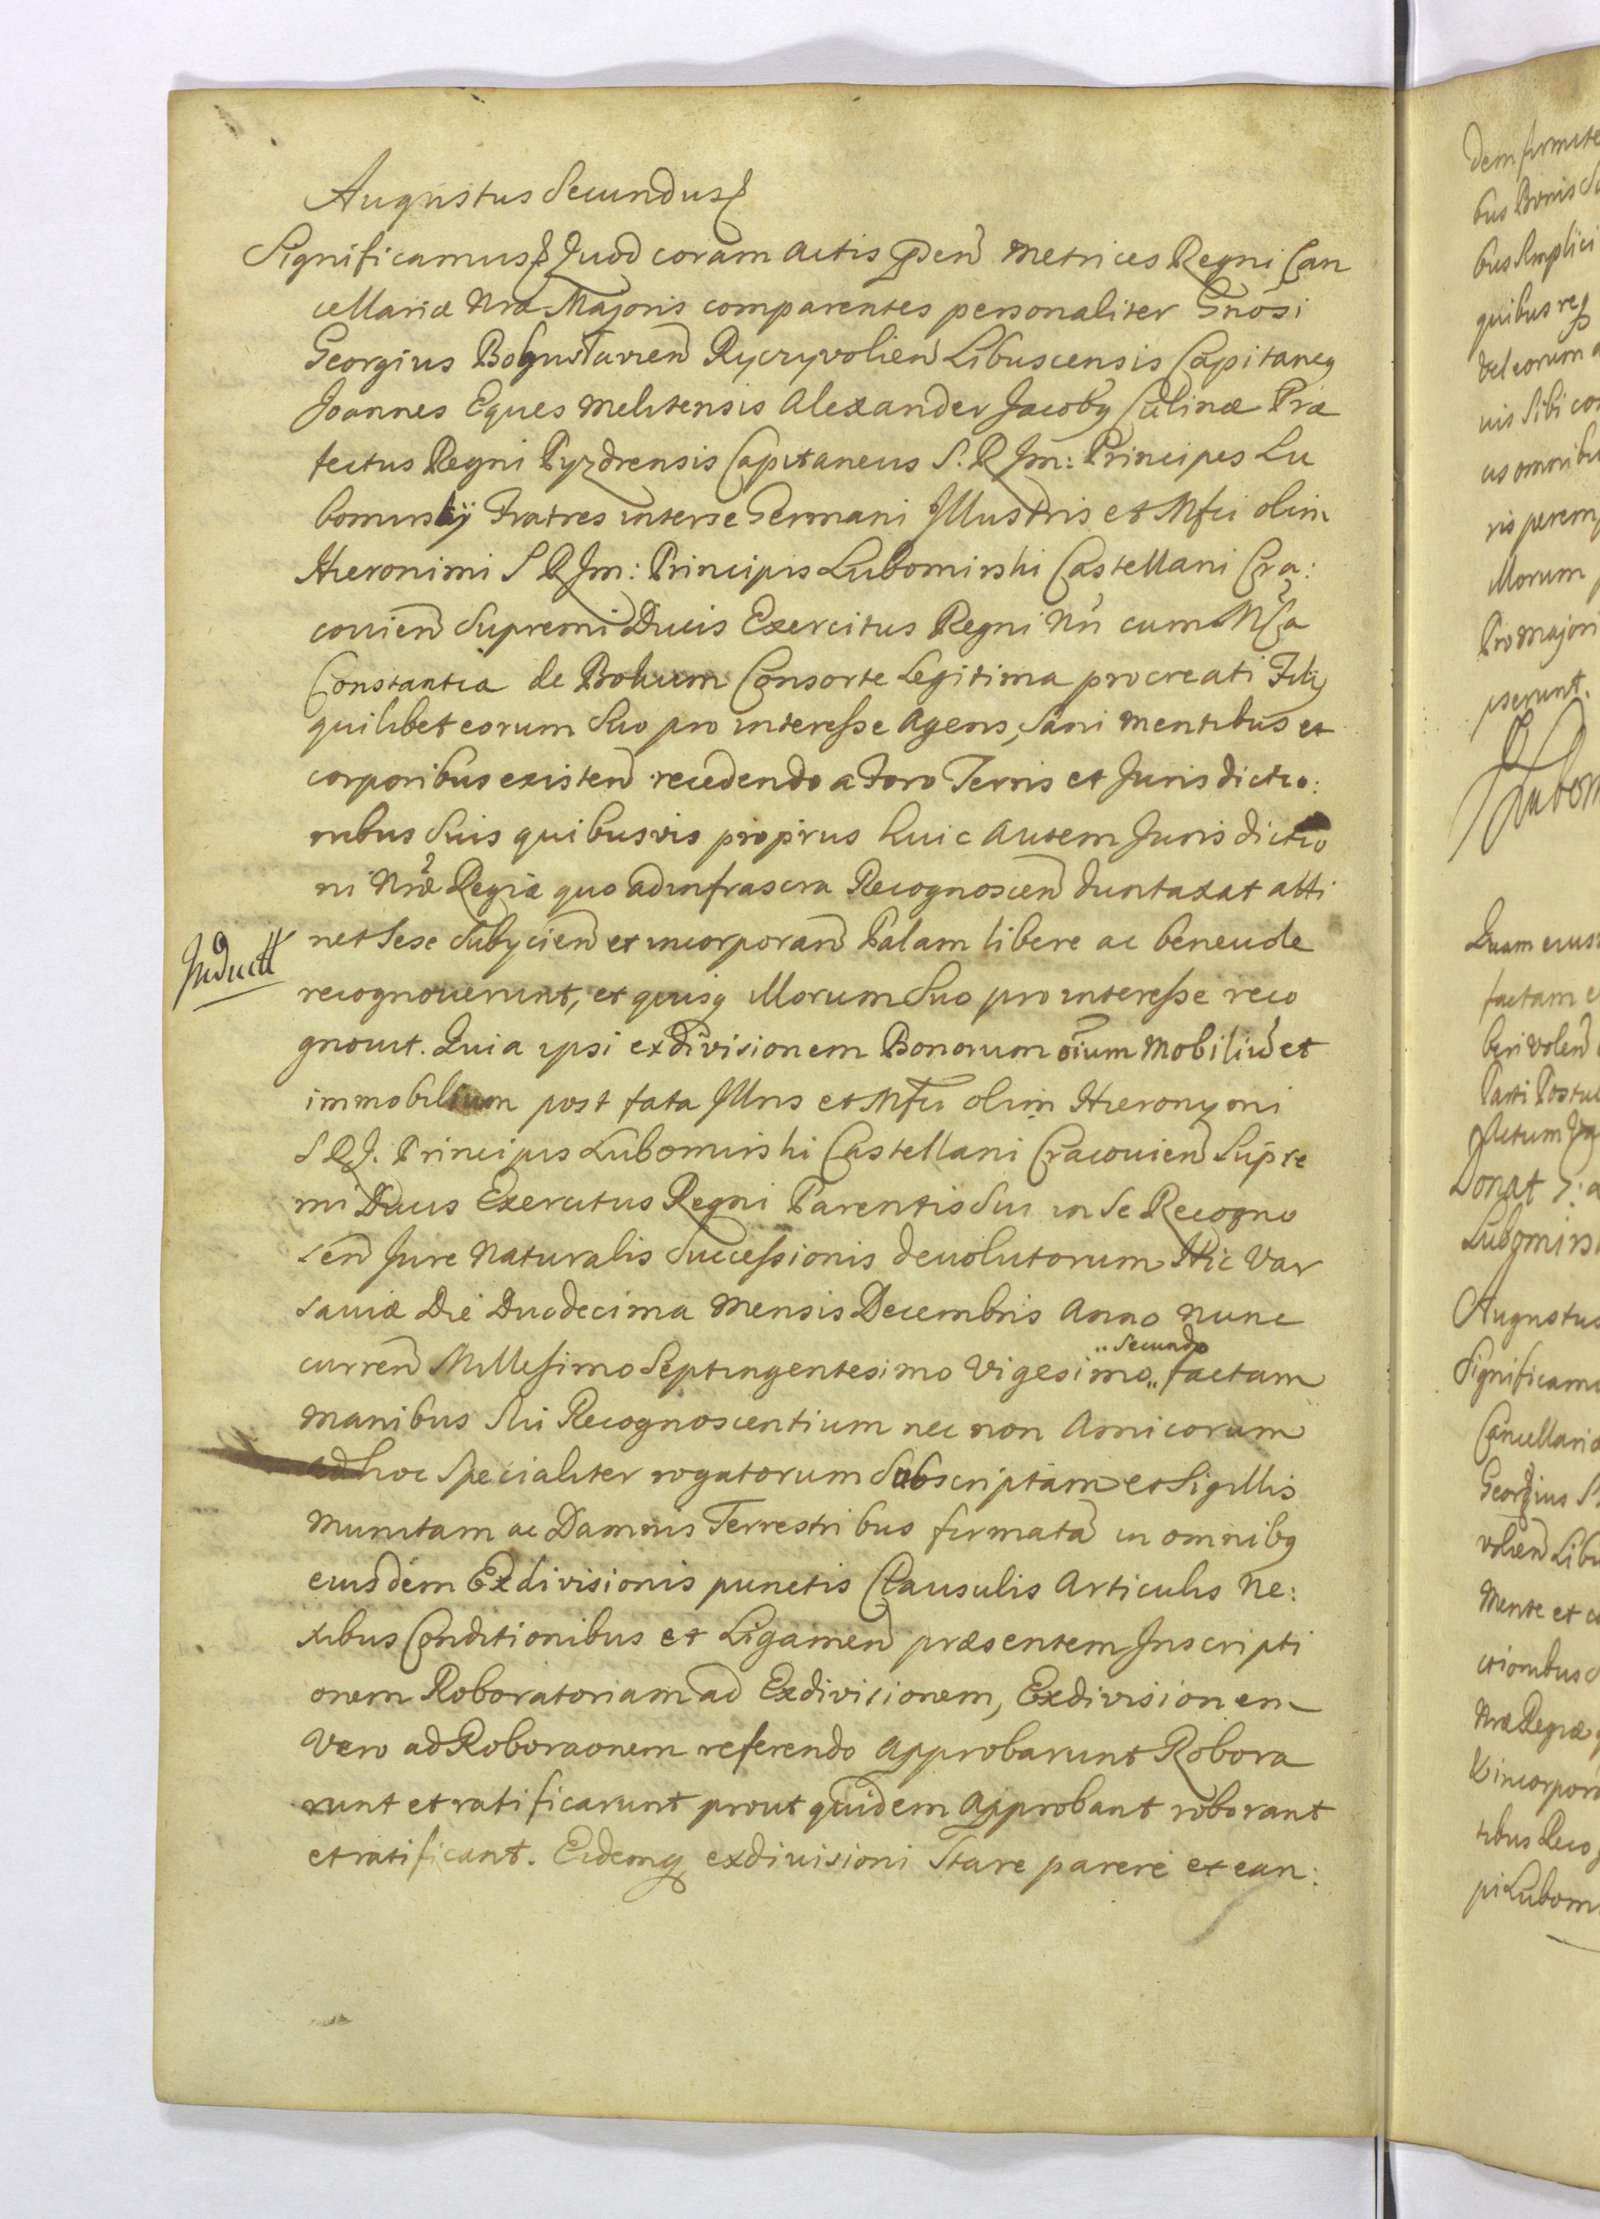 Augustus Secundus
Significamus Quod coram Actis pnẽn Metrices Regni Can
cellariæ Nræ Majoris comparentes personaliter Gnosi
Georgius Boguslavien Ryczyvolien Libuscensis Capitaneq
Joannes Eques Melitensis Alexander Jacobq Culinæ Præ
fectus Regni Pyzdrensis Capitaneus S. R Jm: Principes Lu
bomirskÿ Fratres inter se Germani Illustris et Mfci olim
Hieronimi S R Jm: Principis Lubomirski Castellani Cra:
covien Supremi Ducis Exercitus Regni Nri cum Mca
Constantia de Bokum Consorte Legitima procreati Filÿ
quilibet eorum Suo pro interesse Agens, Sani mentibus et
corporibus existen recedendo a Foro Terris et Jurisdictio:
nibus Suis quibusvis proprius huic Autem Jurisdictio
ni Nræ Regiæ quo ad infrascra Recognoscen duntaxat atti
net Sese Subÿcien et incorporan Palam libere ac benevole
recognoverunt, et quisq Illorum Suo pro interesse reco
gnovit. Quia ipsi exdivisionem Bonorum oium Mobiliũ et
immobilium post fata Illris et Mfci olim Hieronymi
S R J. Principis Lubomirski Castellani Cracovien Supre
mi Ducis Exercitus Regni Parentis Sui in Se Recogno
scen Jure Naturalis Successionis devolutorum Hic Var
saviæ Die Duodecima Mensis Decembris Anno nunc
..Secundo
curren Millesimo Septingentesimo Vigesimo.. factam
Manibus Sui Recognoscentium nec non Amicorum
ad hoc Specialiter rogatorum Subscriptam et Sigillis
Munitam ac Damnis Terrestribus firmatã in omnibq
eiusdem Exdivisionis punctis Clausulis Articulis Ne:
xibus Conditionibus et Ligamen præsentem Inscripti
onem Roboratoriam ad Exdivisionem, Exdivisionem
Vero ad Roboraonem referendo Approbarunt Robora
runt et ratificarunt prout quidem Approbant roborant
et ratificant. Eidemq exdivisioni Stare parere et ean:
Inductt
dem firmite
bus Bonis Su
quibus req
vel eorum a
vis Sibi co
us omnibu
ris perem
Illorum p
Pro majori
pserunt.
Lubom
Quam eius
factam e
beri volen
Parti Postul
Actum
Donat
Lubomirs
Augustus
Significam
Cancellariæ
Georgius S
volien Libu
Mente et co
ctionibus
Nræ Regiæ q
et incorpor
tibus Reco
pi Lubom